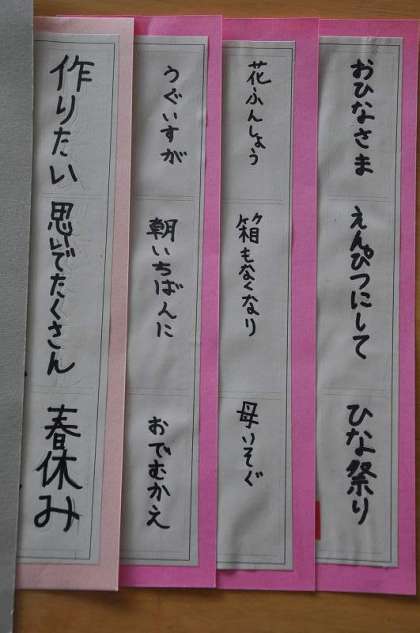 おひなさま えんぴつにして ひな祭り
花ふんしょう 箱もなくなり 母いそぐ
うぐいすが 朝いちばんに おでむかえ
作りたい 思いでたくさん 春休み